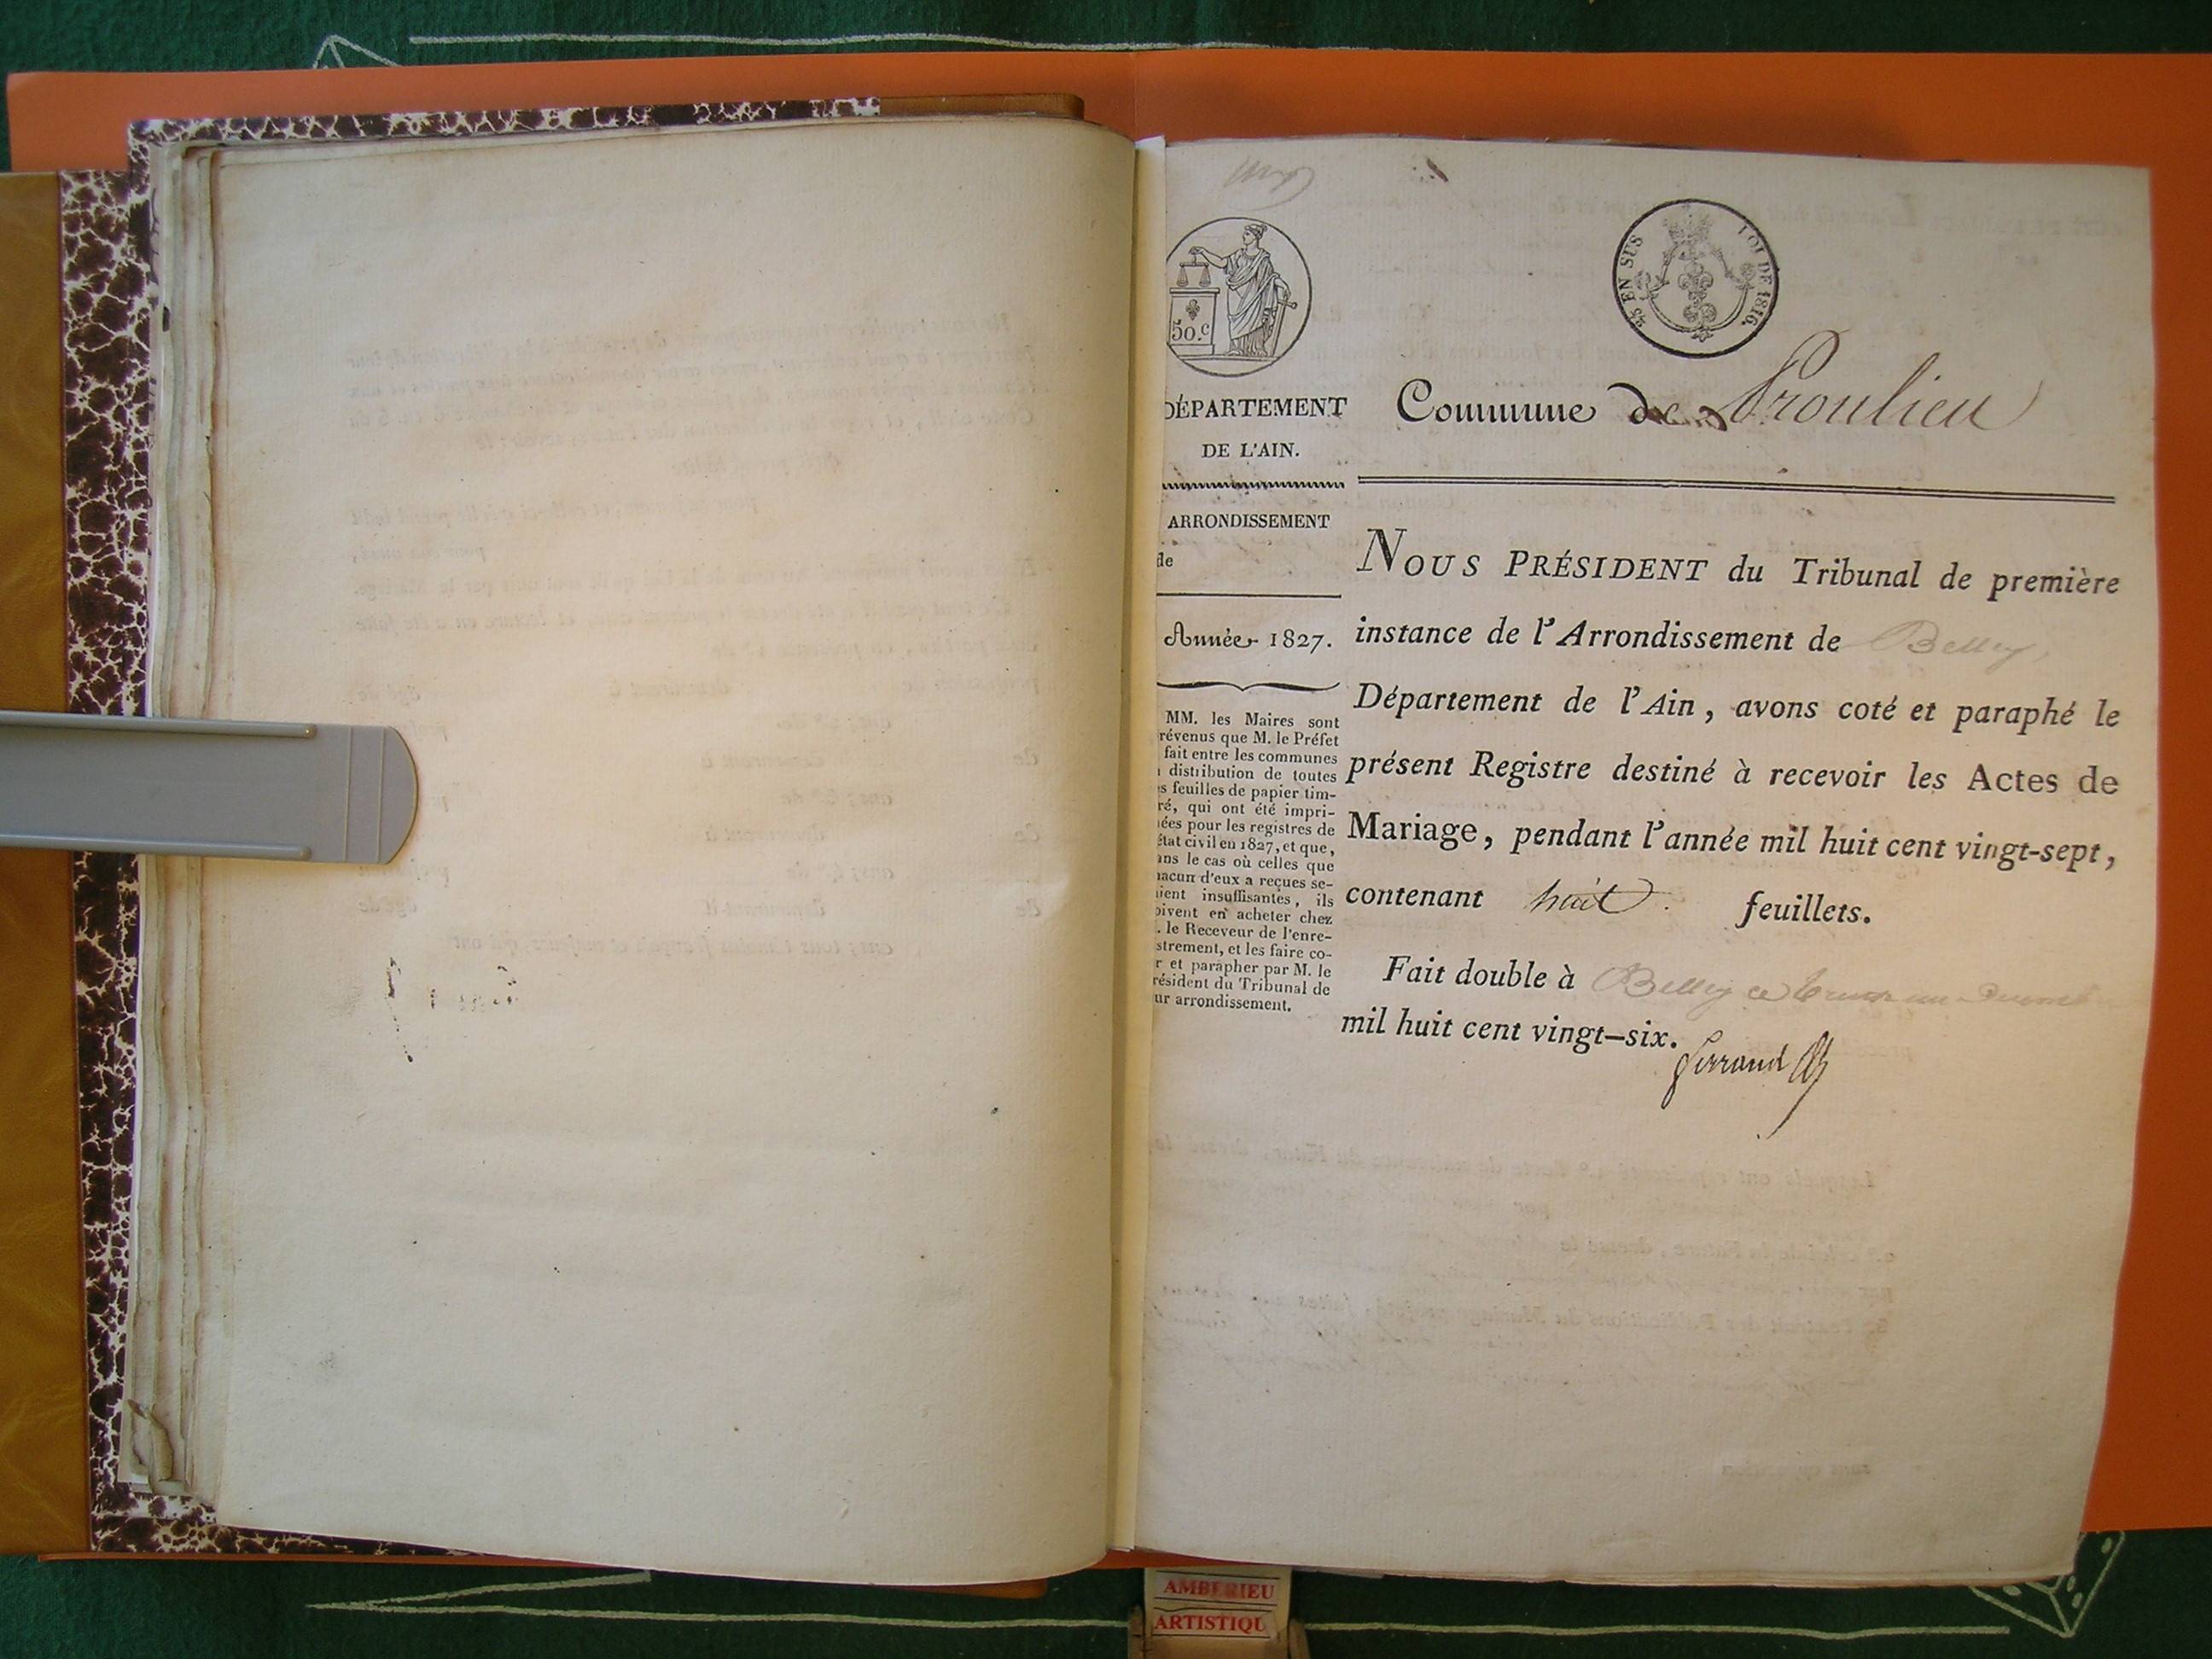 50.c
25 EN SUS LOI DE 1816.
DÉPARTEMENT
DE L'AIN.
Commune de Proulieu
ARRONDISSEMENT
de
Année 1827.
MM. les Maires sont
révenus que M. le Préfet
fait entre les communes
distribution de toutes
s feuilles de papier tim-
ré, qui ont été impri-
ées pour les registres de
état civil en 1827, et que,
ans le cas où celles que
hacun d'eux a reçues se-
aient insuffisantes, ils
oivent en acheter chez
. le Receveur de l'enre-
strement, et les faire co-
r et parapher par M. le
résident du Tribunal de
ur arrondissement.
NOUS PRÉSIDENT du Tribunal de première
instance de l'Arrondissement de Belley,
Département de l'Ain, avons coté et paraphé le
présent Registre destiné à recevoir les Actes de
Mariage, pendant l'année mil huit cent vingt-sept,
contenant huit feuillets.
Fait double à Belley ce
mil huit cent vingt-six.
Ferrand
AMBERIEU
ARTISTIQU